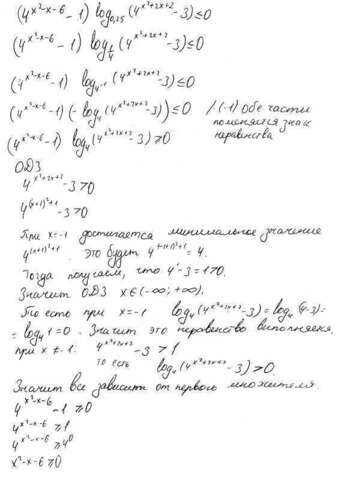 (4^{x²-x-6} - 1) log_{0,25} (4^{x²+2x+2} - 3) ≤ 0
(4^{x²-x-6} - 1) log_{1/4} (4^{x²+2x+2} - 3) ≤ 0
(4^{x²-x-6} - 1) log_{4^{-1}} (4^{x²+2x+2} - 3) ≤ 0
(4^{x²-x-6} - 1) (-log_4 (4^{x²+2x+2} - 3)) ≤ 0 /·(-1) Обе части
поменялся знак
неравенства
(4^{x²-x-6} - 1) log_4 (4^{x²+2x+2} - 3) ≥ 0
ОДЗ
4^{x²+2x+2} - 3 > 0
4^{(x+1)²+1} - 3 > 0
При x=-1 достигается минимальное значение
4^{(x+1)²+1}. Это будет 4^{(-1+1)²+1} = 4.
Тогда получаем, что 4¹-3=1>0.
Значит ОДЗ x∈(-∞; +∞).
То есть при x=-1 log_4 (4^{x²+2x+2} - 3) = log_4 (4-3) =
= log_4 1 = 0. Значит это неравенство выполняется.
при x ≠ -1. 4^{x²+2x+2} - 3 > 1
то есть log_4 (4^{x²+2x+2} - 3) > 0.
Значит все зависит от первого множителя.
4^{x²-x-6} - 1 ≥ 0
4^{x²-x-6} ≥ 1
4^{x²-x-6} ≥ 4⁰
x²-x-6 ≥ 0